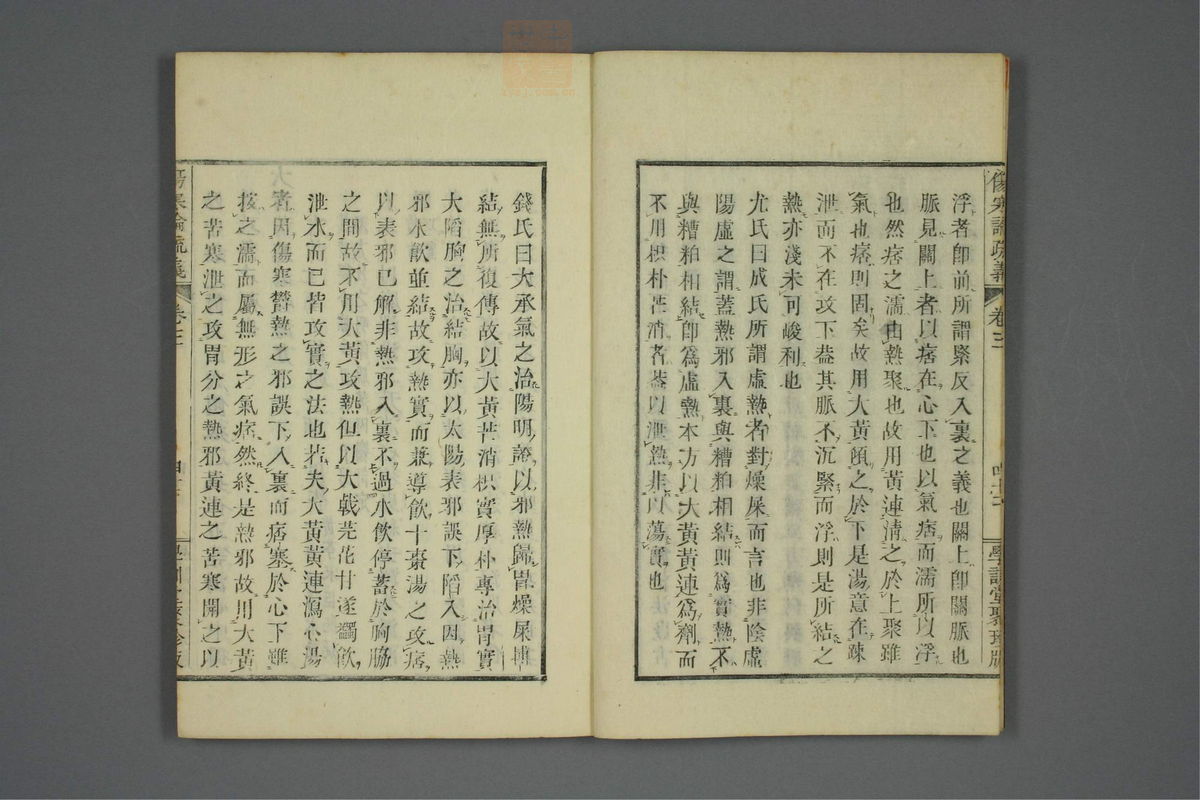 傷寒論疏義 卷三
浮者卽前所謂緊反入裏之義也關上卽關脈也
脈見關上者以痞在心下也以氣痞而濡所以浮
也然痞之濡由熱聚也故用黃連淸之於上聚雖
氣也痞則固矣故用大黃傾之於下是湯意在疎
泄而不在攻下葢其脈不沉緊而浮則是所結之
熱亦淺未可峻利也
尤氏曰成氏所謂虛熱者對燥屎而言也非陰虛
陽虛之謂蓋熱邪入裏與糟粕相結則爲實熱不
與糟粕相結卽爲虛熱本方以大黃黃連爲劑而
不用枳朴芒消者葢以泄熱非以蕩實也
錢氏曰大承氣之治陽明證以邪熱歸胃燥屎搏
結無所復傳故以大黃芒消枳實厚朴專治胃實
大陷胸之治結胸亦以太陽表邪誤下陷入因熱
邪水飮並結故攻熱實而兼導飮十棗湯之攻痞
以表邪已解非熱邪入裏不過水飮停蓄於胸脇
之間故不用大黃攻熱但以大戟芫花甘遂蠲飮
泄水而已皆攻實之法也若夫大黃黃連瀉心湯
者因傷寒鬱熱之邪誤下入裏而痞塞於心下雖
按之濡而屬無形之氣痞然終是熱邪故用大黃
之苦寒泄之攻胃分之熱邪黃連之苦寒開之以
傷寒論疏義 卷三